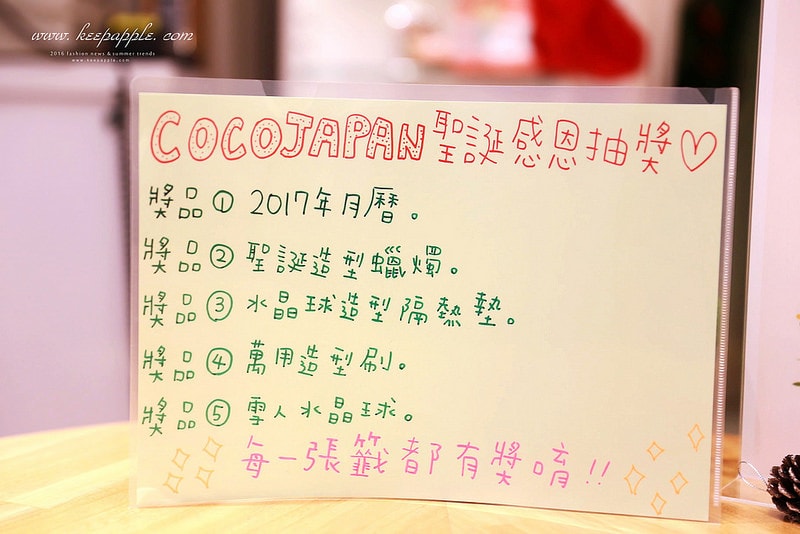 www.keepapple.com
2016 fashion news & summer trends
www.keepapple.com
COCOJAPAN聖誕感恩抽獎♡
獎品① 2017年月曆。
獎品② 聖誕造型蠟燭。
獎品③ 水晶球造型隔熱墊。
獎品④ 萬用造型刷。
獎品⑤ 雪人水晶球。
每一張籤都有獎唷!!